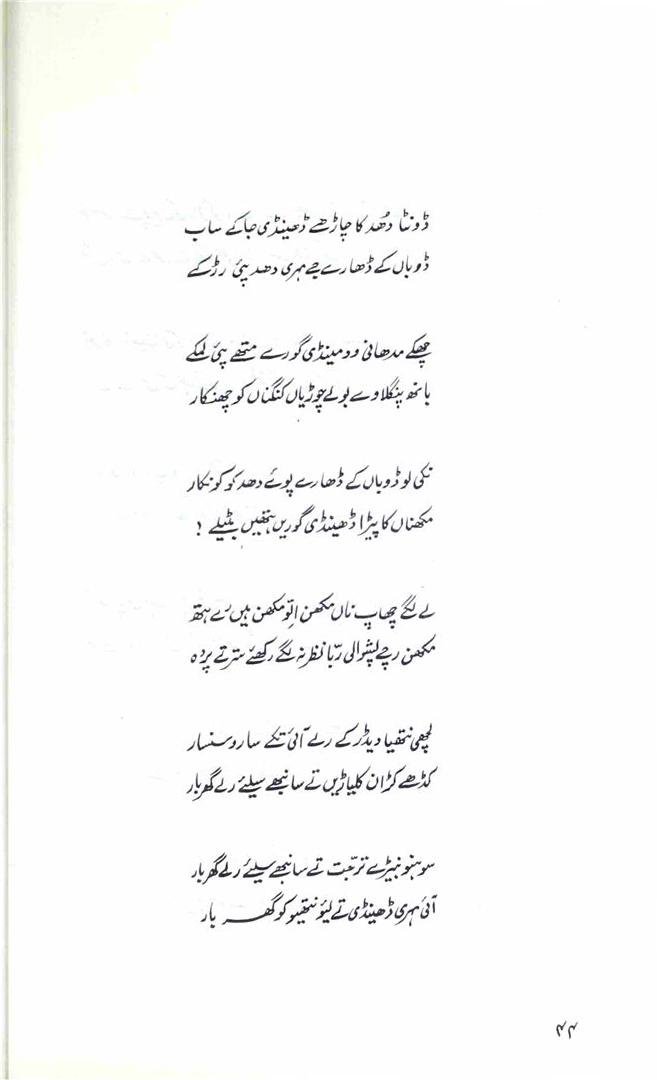 ڈونٹا دُھد کا چاڑھے ڈھینڈی جا کے ساب
ڈوباں کے ڈھارے جے ہری دھد پئی رڑکے
چھکے مدھانی ود مینڈی گورے متھے پئی لمکے
ہاتھ پنگلاوے بولے چوڑیاں کنگناں کو چھنکار
نکی لو ڈوباں کے ڈھارے پوئے دھد کو کونکار
مکھناں کا پیڑا ڈھینڈی گوریں ہتھیں بٹیلے ؟
بے لگے چھاپ ناں مکھن اتو مکھن ہیں رے ہتھ
مکھن رچے لشوالی ربّا نظر نہ لگے رکھئے ستر تے پردہ
لچھی نتھیا دیڈر کے رلے آئی تکے سارو سنسار
کڈھے کڑان کلیاڑیں تے سانبھے سیلئے رلے گھر بار
سوہنو نبیڑے ترجّت تے سانبھے سیلئے رلے گھر بار
آئی ہری ڈھینڈی تے لیؤ نتھیو کو گھر بار
۴۴